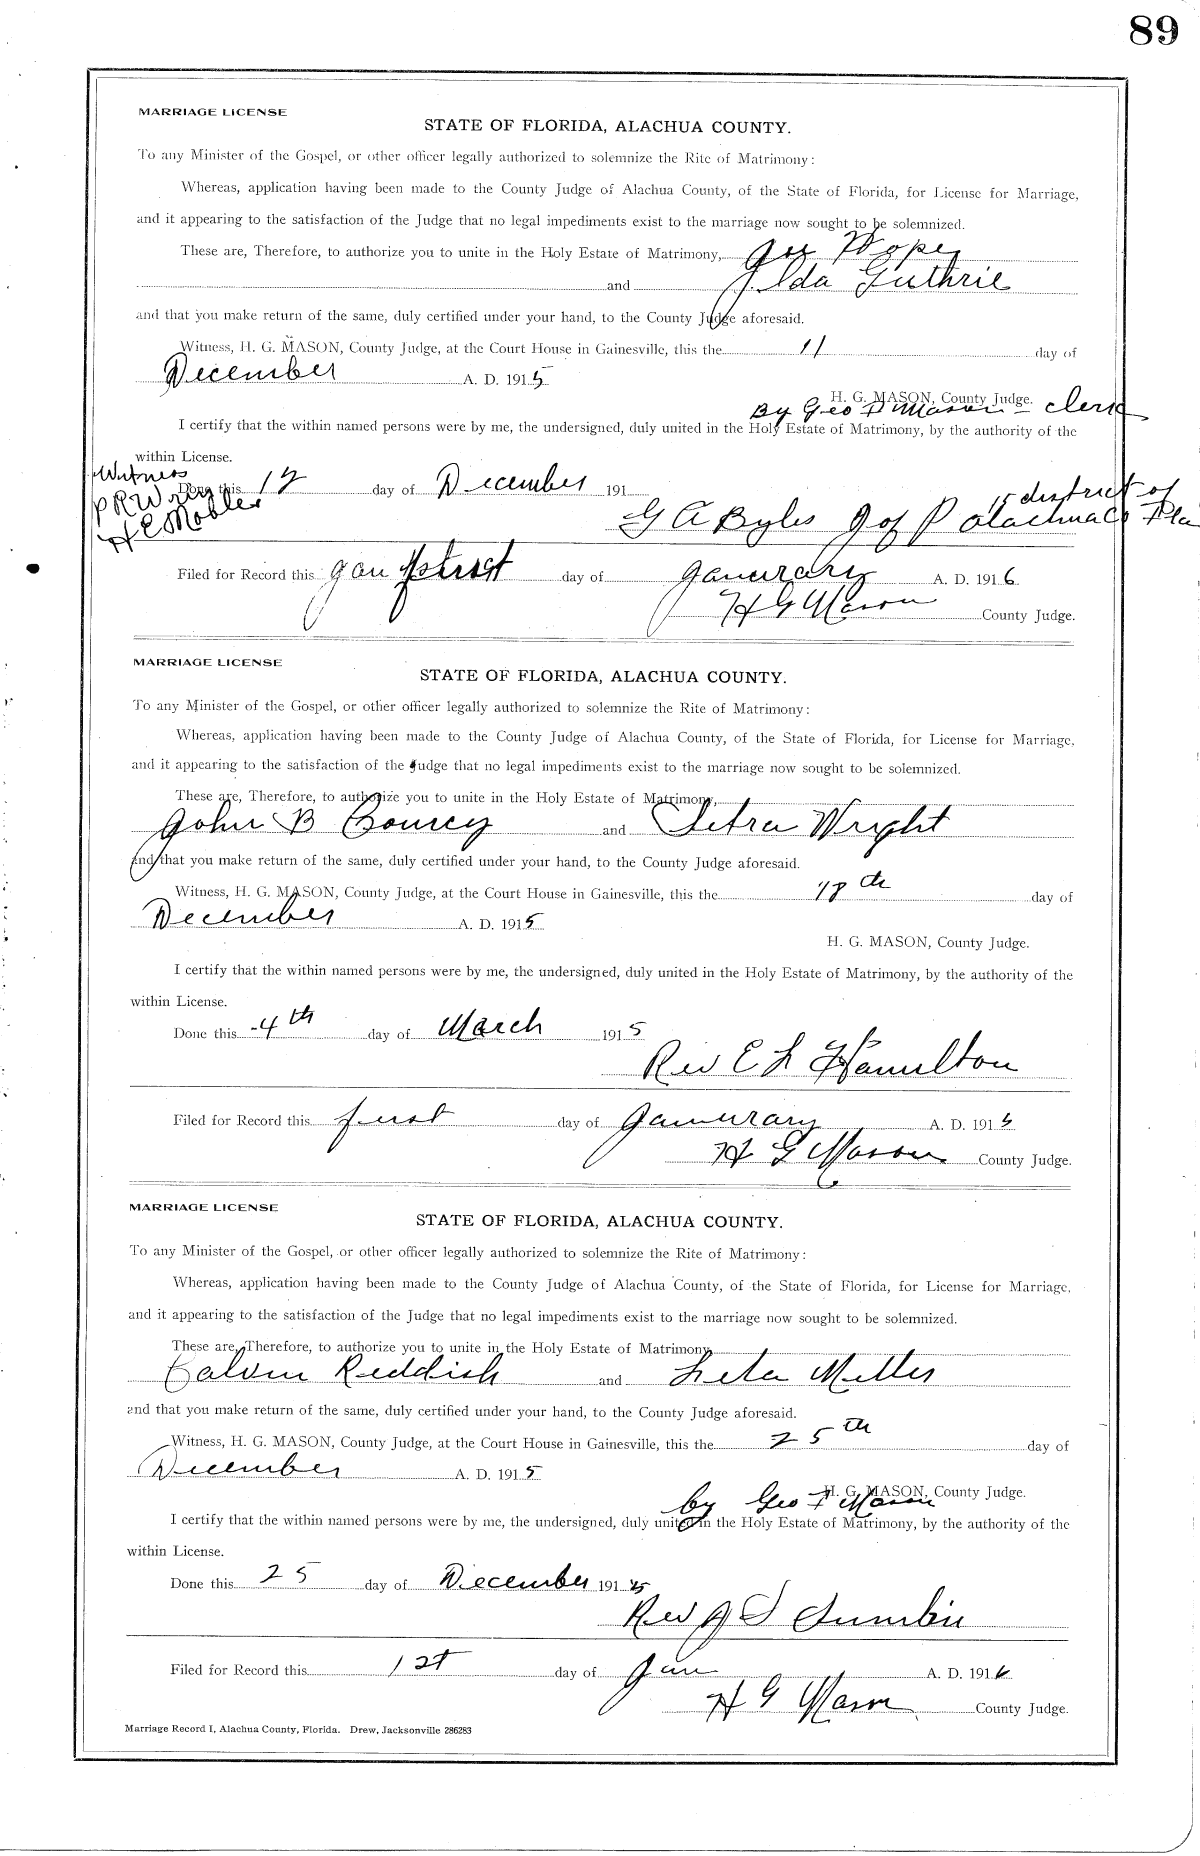 89
MARRIAGE LICENSE
STATE OF FLORIDA, ALACHUA COUNTY.
To any Minister of the Gospel, or other officer legally authorized to solemnize the Rite of Matrimony:
Whereas, application having been made to the County Judge of Alachua County, of the State of Florida, for License for Marriage,
and it appearing to the satisfaction of the Judge that no legal impediments exist to the marriage now sought to be solemnized.
These are, Therefore, to authorize you to unite in the Holy Estate of Matrimony,
and Ida Guthrie
and that you make return of the same, duly certified under your hand, to the County Judge aforesaid.
Witness, H. G. MASON, County Judge, at the Court House in Gainesville, this the 11 day of
December A. D. 1915
H. G. MASON, County Judge.
By Geo Mason clerk
I certify that the within named persons were by me, the undersigned, duly united in the Holy Estate of Matrimony, by the authority of the
within License.
Witness
Done this 12 day of December 191
P R
H E Mobley
15 district of
G A Byles J of P Alachua Co Fla
Filed for Record this Jan first day of Janurary A. D. 1916
H G Mason County Judge.
MARRIAGE LICENSE
STATE OF FLORIDA, ALACHUA COUNTY.
To any Minister of the Gospel, or other officer legally authorized to solemnize the Rite of Matrimony:
Whereas, application having been made to the County Judge of Alachua County, of the State of Florida, for License for Marriage,
and it appearing to the satisfaction of the Judge that no legal impediments exist to the marriage now sought to be solemnized.
These are, Therefore, to authorize you to unite in the Holy Estate of Matrimony,
John B and Wright
and that you make return of the same, duly certified under your hand, to the County Judge aforesaid.
Witness, H. G. MASON, County Judge, at the Court House in Gainesville, this the 18th day of
December A. D. 1915
H. G. MASON, County Judge.
I certify that the within named persons were by me, the undersigned, duly united in the Holy Estate of Matrimony, by the authority of the
within License.
Done this 4th day of March 1915
Rev E L Hamilton
Filed for Record this first day of Janurary A. D. 191
H G Mason County Judge.
MARRIAGE LICENSE
STATE OF FLORIDA, ALACHUA COUNTY.
To any Minister of the Gospel, or other officer legally authorized to solemnize the Rite of Matrimony:
Whereas, application having been made to the County Judge of Alachua County, of the State of Florida, for License for Marriage,
and it appearing to the satisfaction of the Judge that no legal impediments exist to the marriage now sought to be solemnized.
These are, Therefore, to authorize you to unite in the Holy Estate of Matrimony,
Calvin Reddish and Leta Miller
and that you make return of the same, duly certified under your hand, to the County Judge aforesaid.
Witness, H. G. MASON, County Judge, at the Court House in Gainesville, this the 25th day of
December A. D. 1915
H. G. MASON, County Judge.
by Geo Mason
I certify that the within named persons were by me, the undersigned, duly united in the Holy Estate of Matrimony, by the authority of the
within License.
Done this 25 day of December 1915
Rev
Filed for Record this 1st day of Jan A. D. 1916
H G Mason County Judge.
Marriage Record I, Alachua County, Florida. Drew, Jacksonville 286283